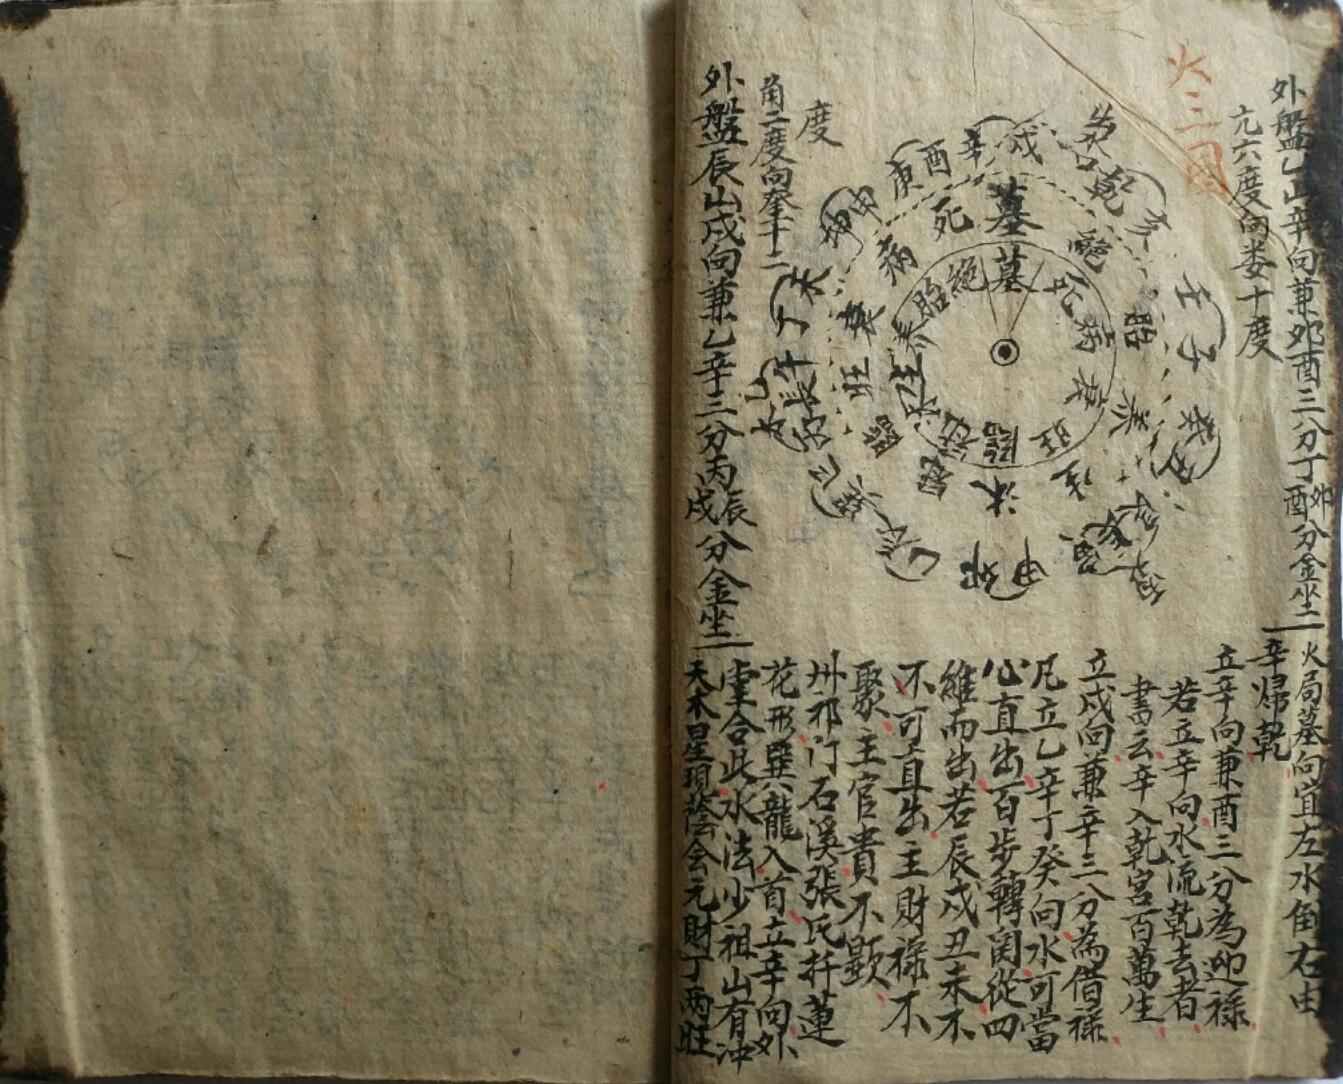 火三圖
外盤乙山辛向兼卯酉三分丁卯
酉分金坐
亢六度向娄十度
外盤辰山戍向兼乙辛三分丙辰
戍分金坐
角二度向奎十二
度
戍
辛
酉
庚
申
乾
亥
壬
子
癸
丑
甲
卯
乙
辰
巽
巳
午
丁
未
墓
死
病
衰
旺
臨
冠
沐
生
養
胎
絕
墓
絕
胎
養
生
沐
冠
臨
旺
衰
病
死
火局墓向宜左水倒右由
辛歸乾
立辛向兼酉三分為迎禄
若立辛向水流乾去者
書云辛入乾宮百萬生
立戍向兼辛三分為借禄
凡立乙辛丁癸向水可當
心直出百步轉関從四
維而出若辰戍丑未不
不可直出主財禄不
聚主官貴不顯
州祁门石溪張氏扦蓮
花形巽龍入首立辛向外
堂合此水法少祖山有冲
天木星現蔭会元財丁两旺